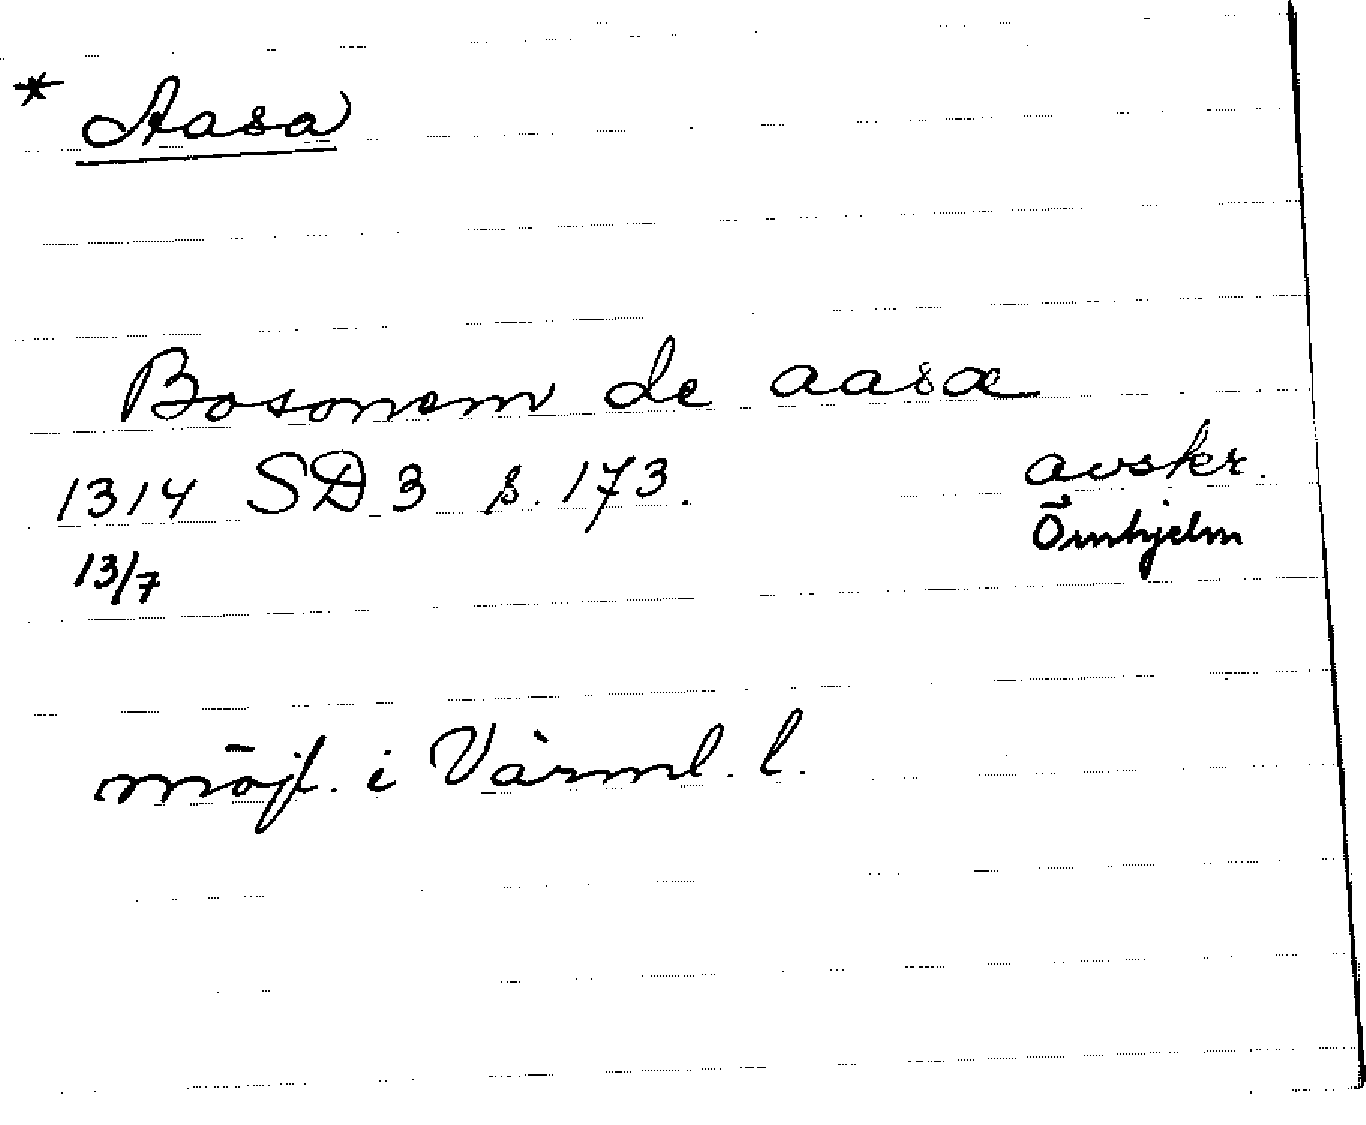 * Aasa
Bosonem de aasæ
1314 SD 3 s. 173. avskr.
13/7 Örnhjelm
möjl. i Värml. l.